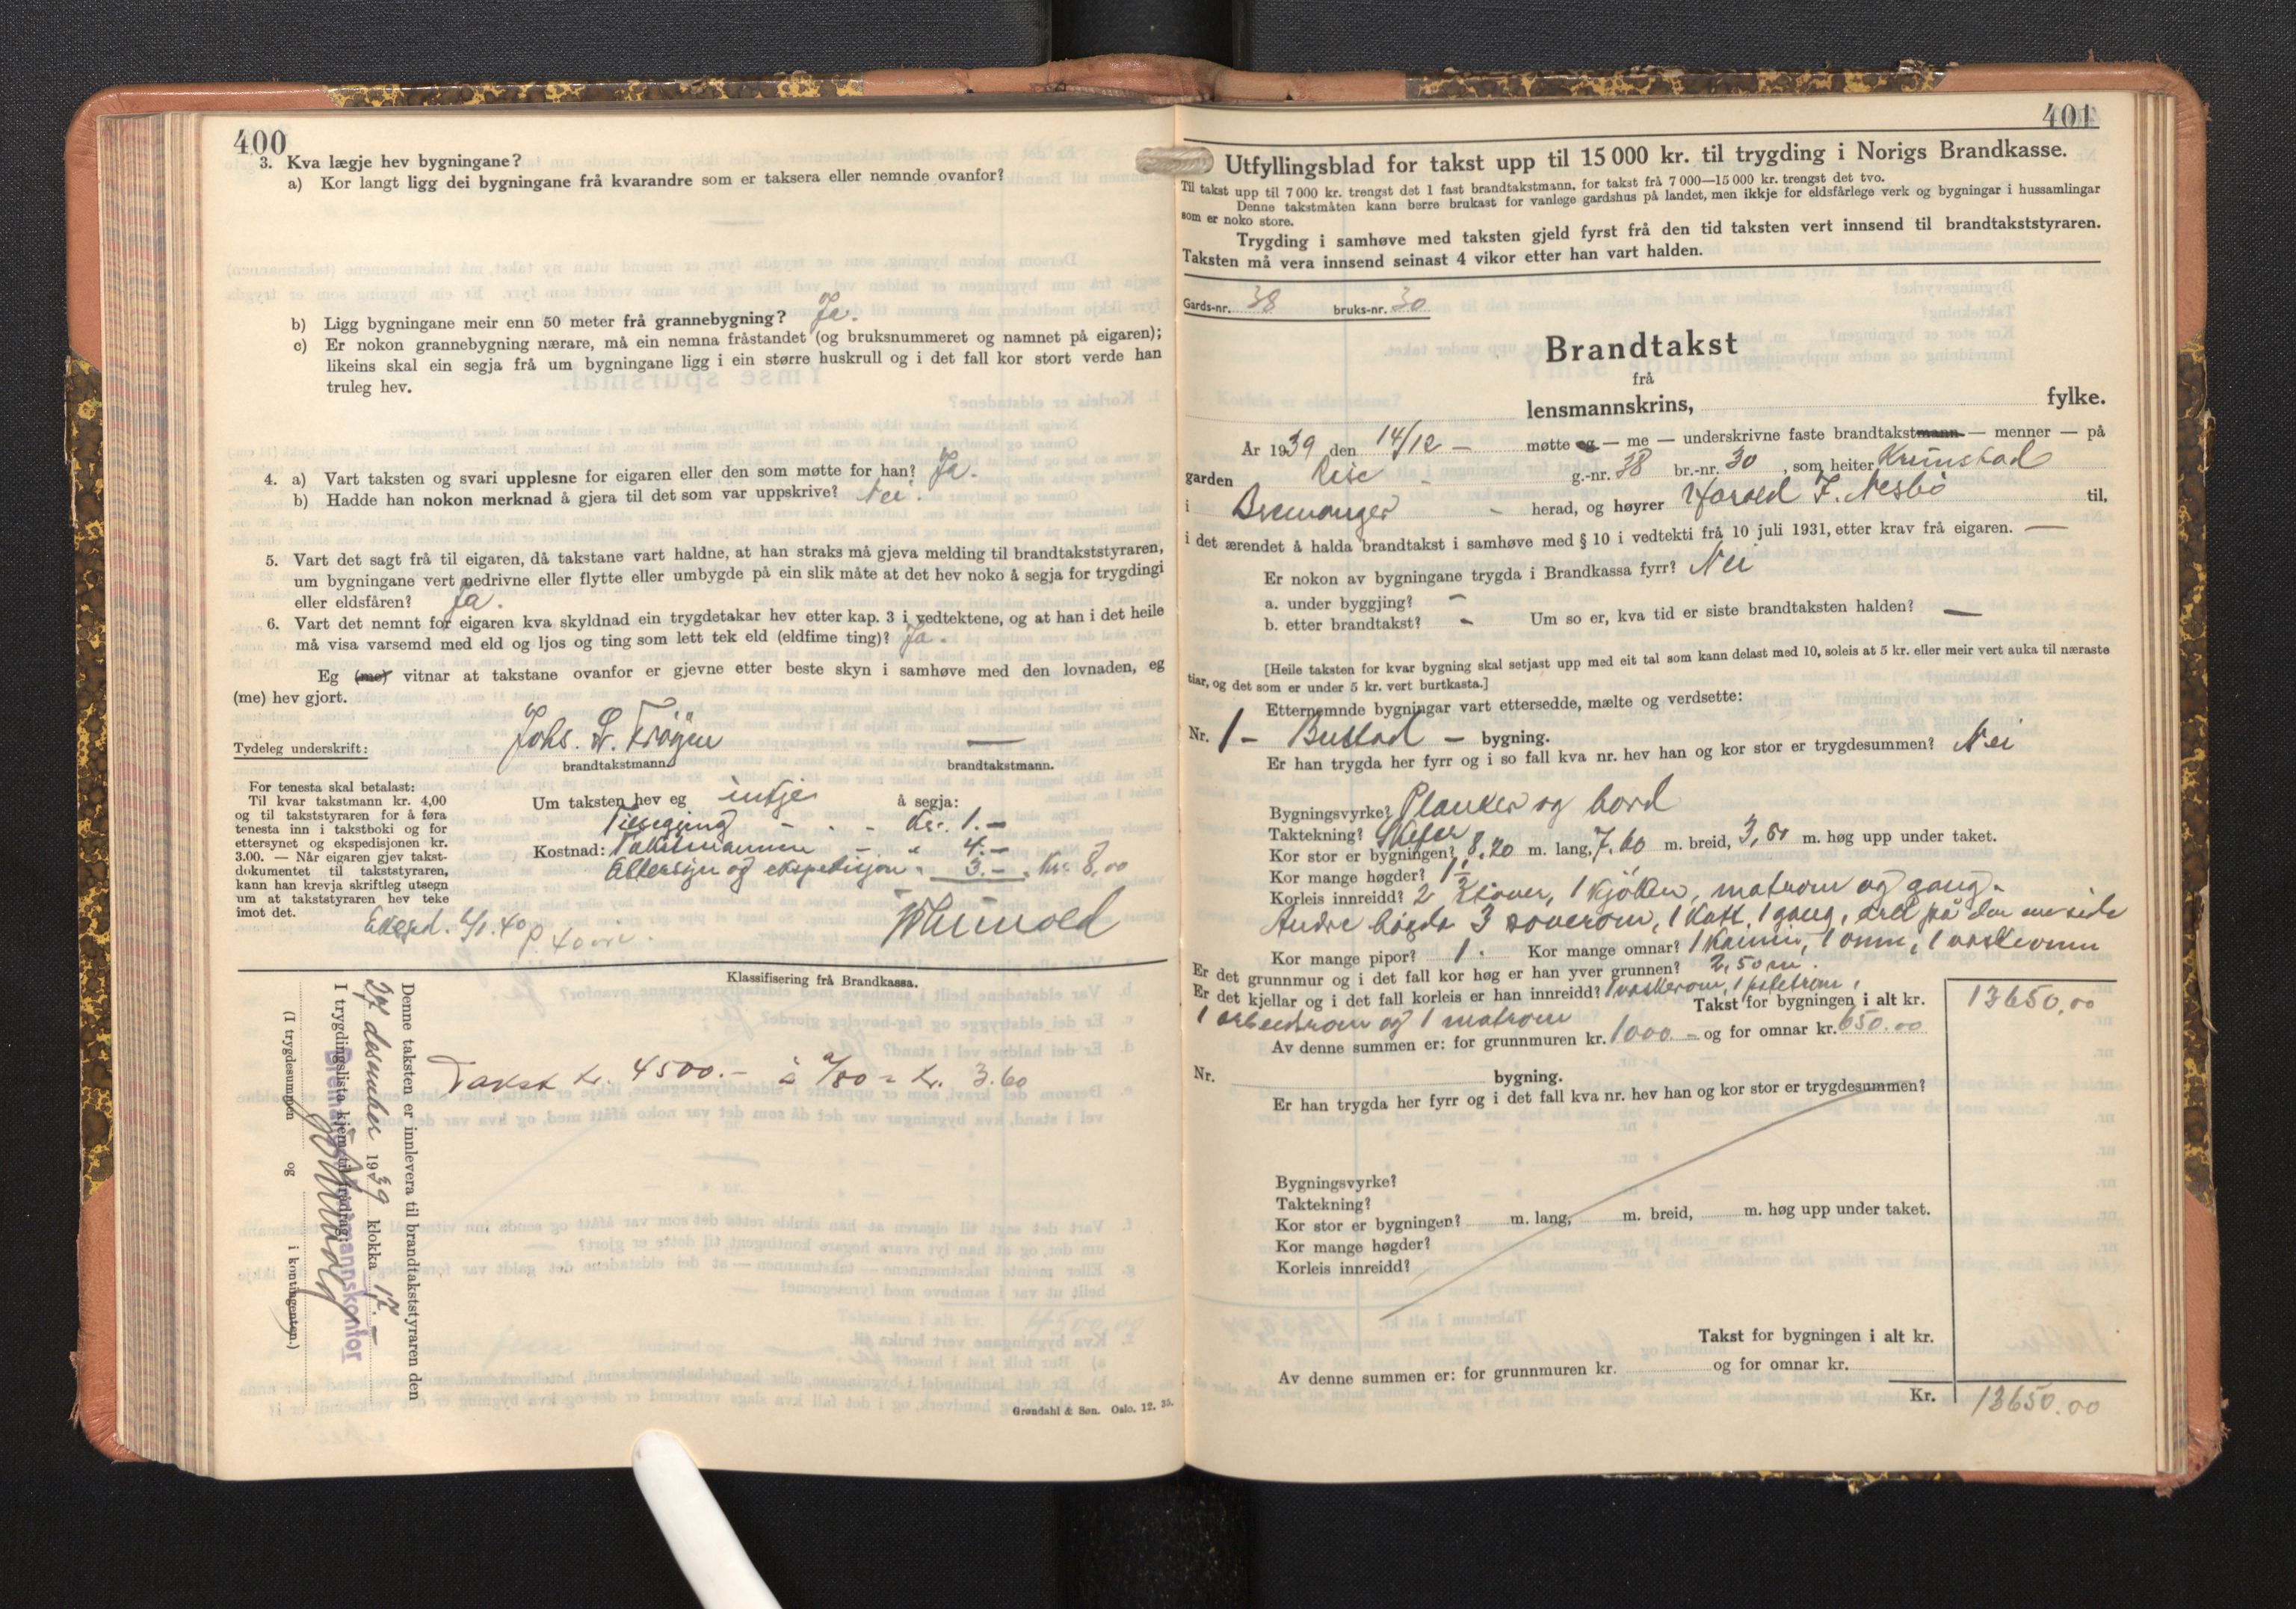 400
3. Kva lægje hev bygningane?
a) Kor langt ligg dei bygningane frå kvarandre som er taksera eller nemnde ovanfor?
b) Ligg bygningane meir enn 50 meter frå grannebygning? Ja.
c) Er nokon grannebygning nærare, må ein nemna fråstandet (og bruksnummeret og namnet på eigaren);
likeins skal ein segja frå um bygningane ligg i ein større huskrull og i det fall kor stort verde han
truleg hev.
4. a) Vart taksten og svari upplesne for eigaren eller den som møtte for han? Ja.
b) Hadde han nokon merknad å gjera til det som var uppskrive? Nei.
5. Vart det sagt frå til eigaren, då takstane vart haldne, at han straks må gjeva melding til brandtakststyraren,
um bygningane vert nedrivne eller flytte eller umbygde på ein slik måte at det hev noko å segja for trygdingi
eller eldsfåren? Ja.
6. Vart det nemnt for eigaren kva skyldnad ein trygdetakar hev etter kap. 3 i vedtektene, og at han i det heile
må visa varsemd med eld og ljos og ting som lett tek eld (eldfime ting)? Ja.
Eg (me) vitnar at takstane ovanfor er gjevne etter beste skyn i samhøve med den lovnaden, eg
(me) hev gjort.
Tydeleg underskrift: Johs. L. Frøyen —
brandtakstmann. brandtakstmann.
For tenesta skal betalast:
Til kvar takstmann kr. 4,00
og til takststyraren for å føra
tenesta inn i takstboki og for
ettersynet og ekspedisjonen kr.
3.00. — Når eigaren gjev takst-
dokumentet til takststyraren,
kann han krevja skriftleg utsegn
um at takststyraren hev teke
imot det.
Um taksten hev eg intje å segja:
Tilsegjing - - - Kr. 1.—
Kostnad: Takstmannen - " 4.—
Ettersyn og ekspedisjon " 3.— Kr. 8,00
Eksp. 6/1.40
Klassifisering frå Brandkassa.
Takst kr. 4500.— à 8/80 = kr. 3.60
Denne taksten er innlevera til brandtakststyraren den
27 desember 1939 klokka 17.—
I trygdingslista kjem til frådrag:
Bremanger lensmannskontor
(I trygdesummen og i kontingenten.)
Grøndahl & Søn. Oslo. 12. 35.
401
Utfyllingsblad for takst upp til 15 000 kr. til trygding i Norigs Brandkasse.
Til takst upp til 7 000 kr. trengst det 1 fast brandtakstmann, for takst frå 7 000—15 000 kr. trengst det tvo.
Denne takstmåten kann berre brukast for vanlege gardshus på landet, men ikkje for eldsfårlege verk og bygningar i hussamlingar
som er noko store.
Trygding i samhøve med taksten gjeld fyrst frå den tid taksten vert innsend til brandtakststyraren.
Taksten må vera innsend seinast 4 vikor etter han vart halden.
Gards-nr. 38 bruks-nr. 30
Brandtakst
frå
lensmannskrins, fylke.
År 1939 den 14/12 — møtte eg — me — underskrivne faste brandtakstmann — menner — på
garden Rise - g.-nr. 38 br.-nr. 30, som heiter Krunstad
i Bremanger - herad, og høyrer Harald F. Nesbø til,
i det ærendet å halda brandtakst i samhøve med § 10 i vedtekti frå 10 juli 1931, etter krav frå eigaren. —
Er nokon av bygningane trygda i Brandkassa fyrr? Nei
a. under byggjing? -
b. etter brandtakst? - Um so er, kva tid er siste brandtaksten halden? —
[Heile taksten for kvar bygning skal setjast upp med eit tal som kann delast med 10, soleis at 5 kr. eller meir vert auka til næraste
tiar, og det som er under 5 kr. vert burtkasta.]
Etternemnde bygningar vart ettersedde, mælte og verdsette:
Nr. 1 — Bustad — bygning.
Er han trygda her fyrr og i so fall kva nr. hev han og kor stor er trygdesummen? Nei
Bygningsvyrke? Planker og bord
Taktekning? Skifer
Kor stor er bygningen? 8,20 m. lang, 7,60 m. breid, 3,50 m. høg upp under taket.
Kor mange høgder? 1½
Korleis innreidd? 2 stover, 1 kjøkken, matrom og gang.
Andre høgda 3 soverom, 1 kott, 1 gang, ark på den eine side
Kor mange pipor? 1. Kor mange omnar? 1 kamin, 1 omn, 1 vaskeomn
Er det grunnmur og i det fall kor høg er han yver grunnen? 2,50 m.
Er det kjellar og i det fall korleis er han innreidd? 1 vaskerom,
1 arbeidsrom og 1 matrom Takst for bygningen i alt kr. 13650,00
Av denne summen er: for grunnmuren kr. 1000.— og for omnar kr. 650.00
Nr. bygning.
Er han trygda her fyrr og i det fall kva nr. hev han og kor stor er trygdesummen?
Bygningsvyrke?
Taktekning?
Kor stor er bygningen? m. lang, m. breid, m. høg upp under taket.
Kor mange høgder?
Korleis innreidd?
Takst for bygningen i alt kr.
Av denne summen er: for grunnmuren kr. og for omnar kr.
Kr. 13650.00